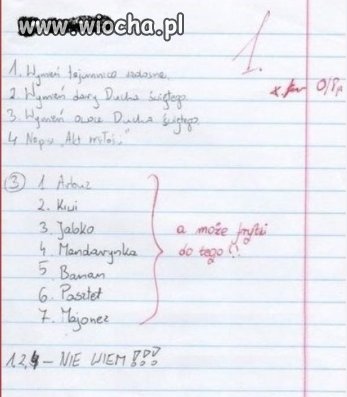 www.wiocha.pl
1.
0/8p
1. Wymień tajemnice radosne.
2. Wymień dary Ducha Świętego.
3. Wymień owoce Ducha Świętego.
4 Napisz „Akt miłości"
③ 1 Arbuz
2. Kiwi
3. Jabko
4. Mandarynka
5 Banan
6. Pasztet
7. Majonez
a może frytki
do tego?!
1,2,4 – NIE WIEM!!!